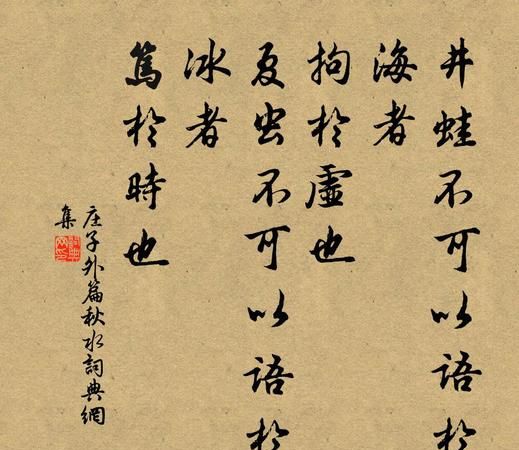 井蛙不可以语於
海者
拘於虛也
夏虫不可以语於
冰者
篤於時也
庄子外篇秋水詞典網
集